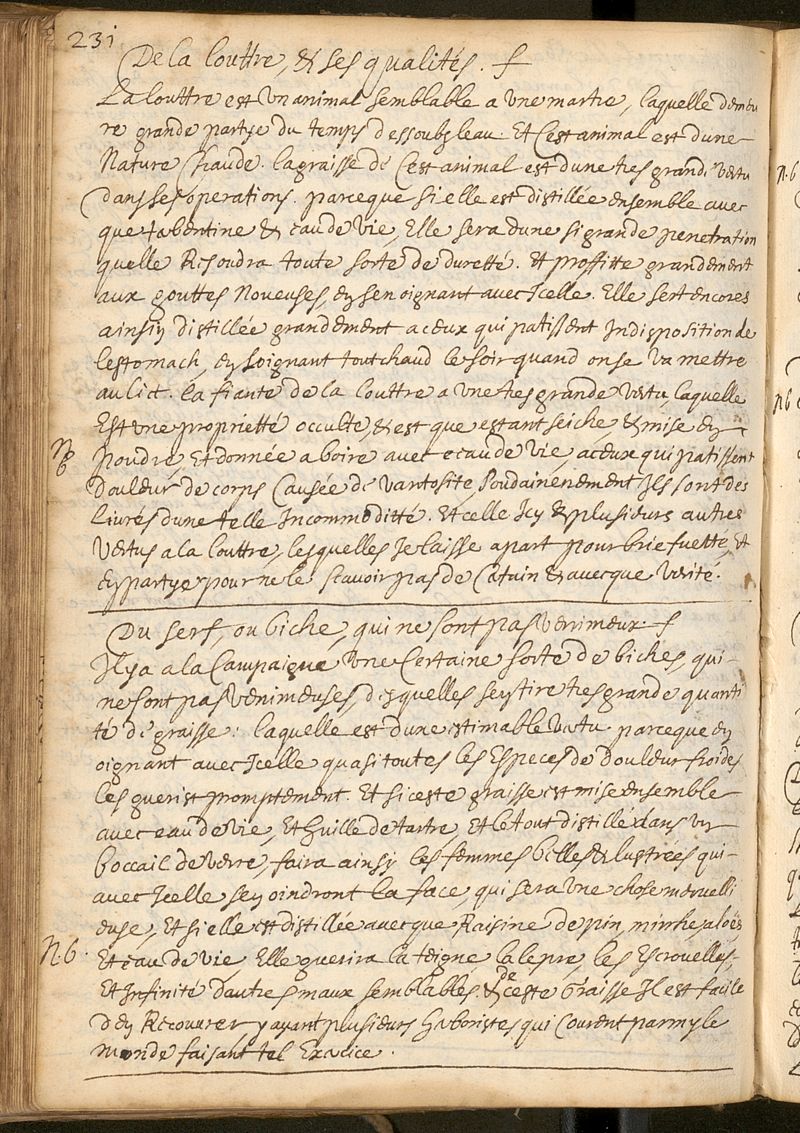 231
De la louttre, & ses qualités. f
La louttre est un animal semblable a une martre, laquelle demeu
re grande partye du temps dessoubs leau. Et C'est animal est dune
Nature Chaude. la graisse de C'est animal est dune tres grande vertu
dans ses operations. parceque si elle est distillée ensemble avec
que terbentine & eau de vie, Elle sera dune si grande penetration
quelle Resoudra toute sorte de duretté. Et proffitte grandement
aux gouttes Noueuses, en sen oignant avec Icelle. Elle sert encores
ainsin distillée grandement a ceux qui patissent Indisposition de
lestomach, en loignant tout chaud le soir quand on se va mettre
au lict. la fiante de la louttre a une tres grande vertu, laquelle
Est une proprietté occulte, & est que estant seiche, & mise en
Poudre, Et donnée a boire avec eau de vie, a ceux qui patissent
Douleur de corps Causée de vantosite, soudainement Ils sont des
Livrés dune telle Incommoditté. Et celle Icy & plusieurs autres
Vertus a la louttre, lesquelles Je laisse a part pour briefuetté, Et
en partye pour ne le scavoir pas de Catain & avecque verité.
NB
Du serf, ou biche, qui ne sont pas venimeux. f
Il y a a la Campaigne Une Certaine sorte de biches, qui
ne sont pas venimeuses, desquelles sen tire tres grande quanti
té de graisse: laquelle est dune estimable vertu. parceque en
oignant avec Icelle quasi toutes les Especes de douleur froides
les guerist promptement. Et si ceste graisse est mise ensemble
avec eau de vie, Et huille de tartre, Et le tout distillé dans un
boccail de verre, faira ainsy les femmes belles & lustrées qui
avec Icelle sen oindront la face, qui sera Une chose merveilli
euse, Et si elle est distillée avecque Raisine de pin, mirrhe, aloës
Et eau de vie, Elle guerira la teigne, la lepre, les Escrouelles,
Et Infinité dautres maux semblables. & de ceste Graisse Il est facile
den Recouvrer y ayant plusieurs Harboristes qui Courent parmy le
monde faisant tel Exercice.
N.B.